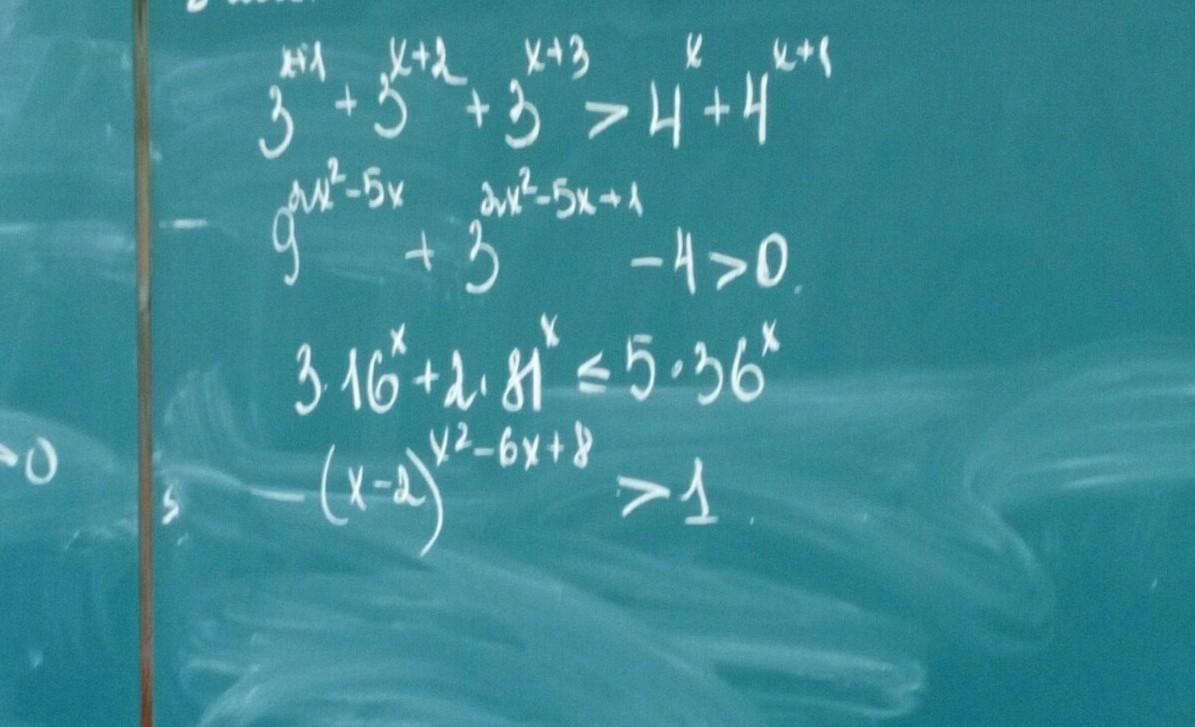 3^{x+1} + 3^{x+2} + 3^{x+3} > 4^x + 4^{x+1}
— 9^{2x^2-5x} + 3^{2x^2-5x+1} - 4 > 0.
3·16^x + 2·81^x ≤ 5·36^x
>0
— (x-2)^{x^2-6x+8} > 1.